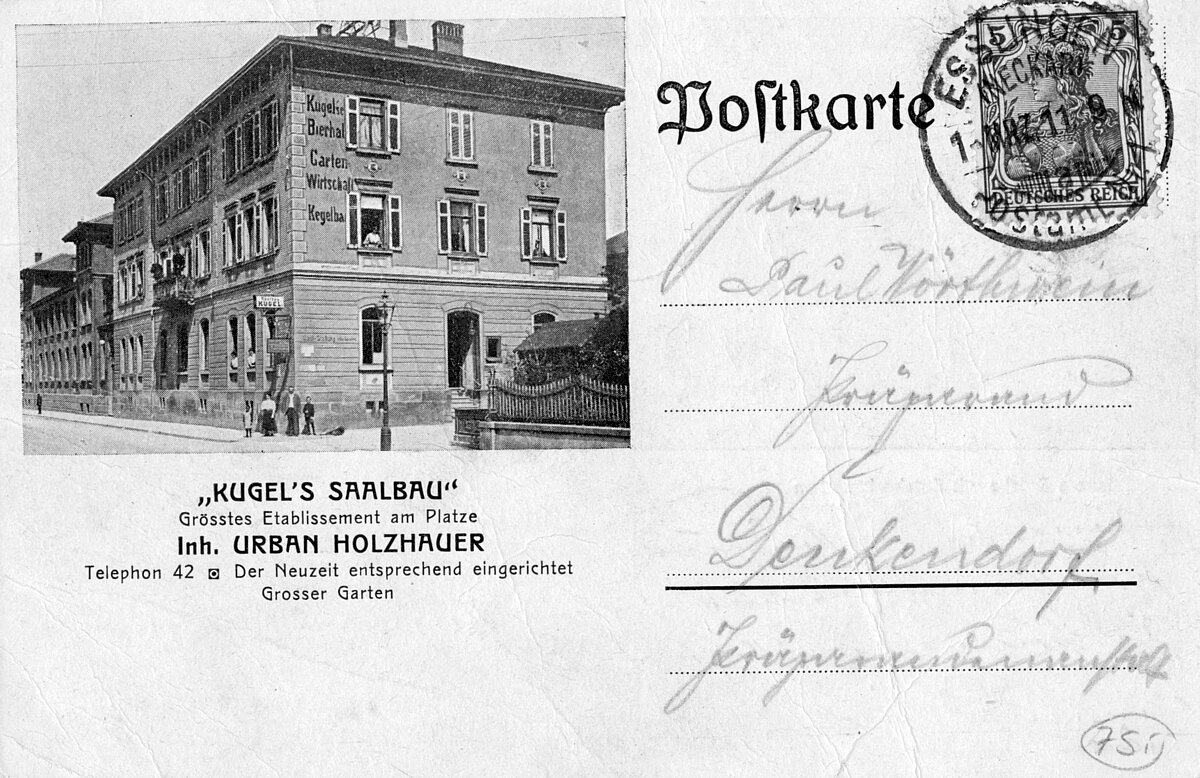 Kugels
Bierhal
Garten
Wirtschaft
Kegelba
KUGEL
„KUGEL'S SAALBAU“
Grösstes Etablissement am Platze
Inh. URBAN HOLZHAUER
Telephon 42 Der Neuzeit entsprechend eingerichtet
Grosser Garten
Postkarte
5 5
DEUTSCHES REICH
ESSLINGEN
(NECKAR)
1. MRZ 11. 9
Herrn
Paul Wörthwein
Präparand
Denkendorf
Präparandenanstalt
75i